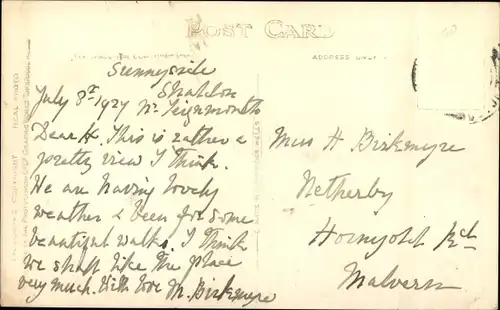 POST CARD
ADDRESS ONLY
Sunnyside
Shaldon
July 8th 1927 Nr. Teignmouth
Dear H. This is rather a
pretty view I think.
We are having lovely
weather & been for some
beautiful walks. I think
we shall like the place
very much. With love M. Birkmyre
Miss H Birkmyre
Netherby
Hornyold Rd
Malvern